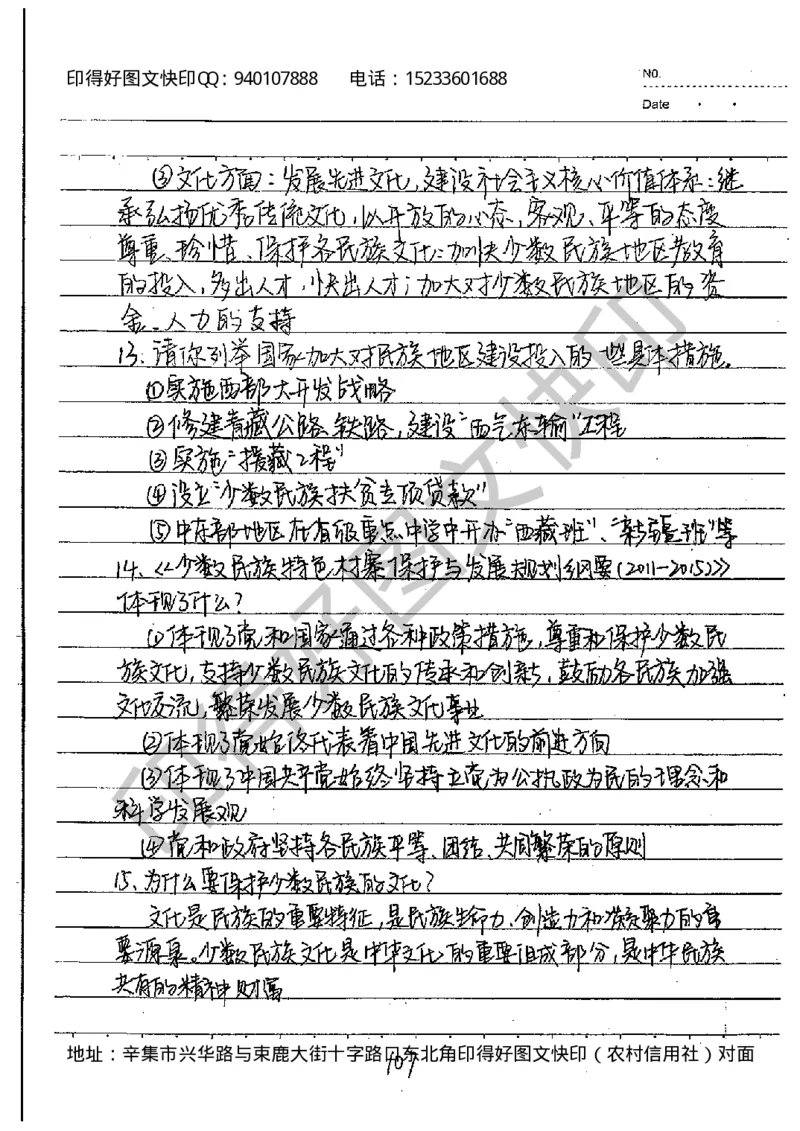 印得好图文快印QQ：940107888 电话：15233601688
No.
Date
③文化方面：发展先进文化，建设社会主义核心价值体系；继
承弘扬优秀传统文化，以开放的心态，客观、平等的态度
尊重、珍惜、保护各民族文化；加快少数民族地区教育
的投入，多出人才，快出人才；加大对少数民族地区的资
金、人力的支持
13、请你列举国家加大对民族地区建设投入的一些具体措施。
①实施西部大开发战略
②修建青藏公路、铁路，建设“西气东输”工程
③实施“援藏工程”
④设立“少数民族扶贫专项贷款”
⑤中东部地区在省级重点中学中开办“西藏班”、“新疆班”等
14、《少数民族特色村寨保护与发展规划纲要（2011-2015）》
体现了什么？
①体现了党和国家通过各种政策措施，尊重和保护少数民
族文化，支持少数民族文化的传承和创新，鼓励各民族加强
文化交流，繁荣发展少数民族文化事业
②体现了党始终代表着中国先进文化的前进方向
③体现了中国共产党始终坚持立党为公执政为民的理念和
科学发展观
④党和政府坚持各民族平等、团结、共同繁荣的原则
15、为什么要保护少数民族的文化？
文化是民族的重要特征，是民族生命力、创造力和凝聚力的重
要源泉。少数民族文化是中华文化的重要组成部分，是中华民族
共有的精神财富
地址：辛集市兴华路与束鹿大街十字路口东北角印得好图文快印（农村信用社）对面
107
印得好图文快印